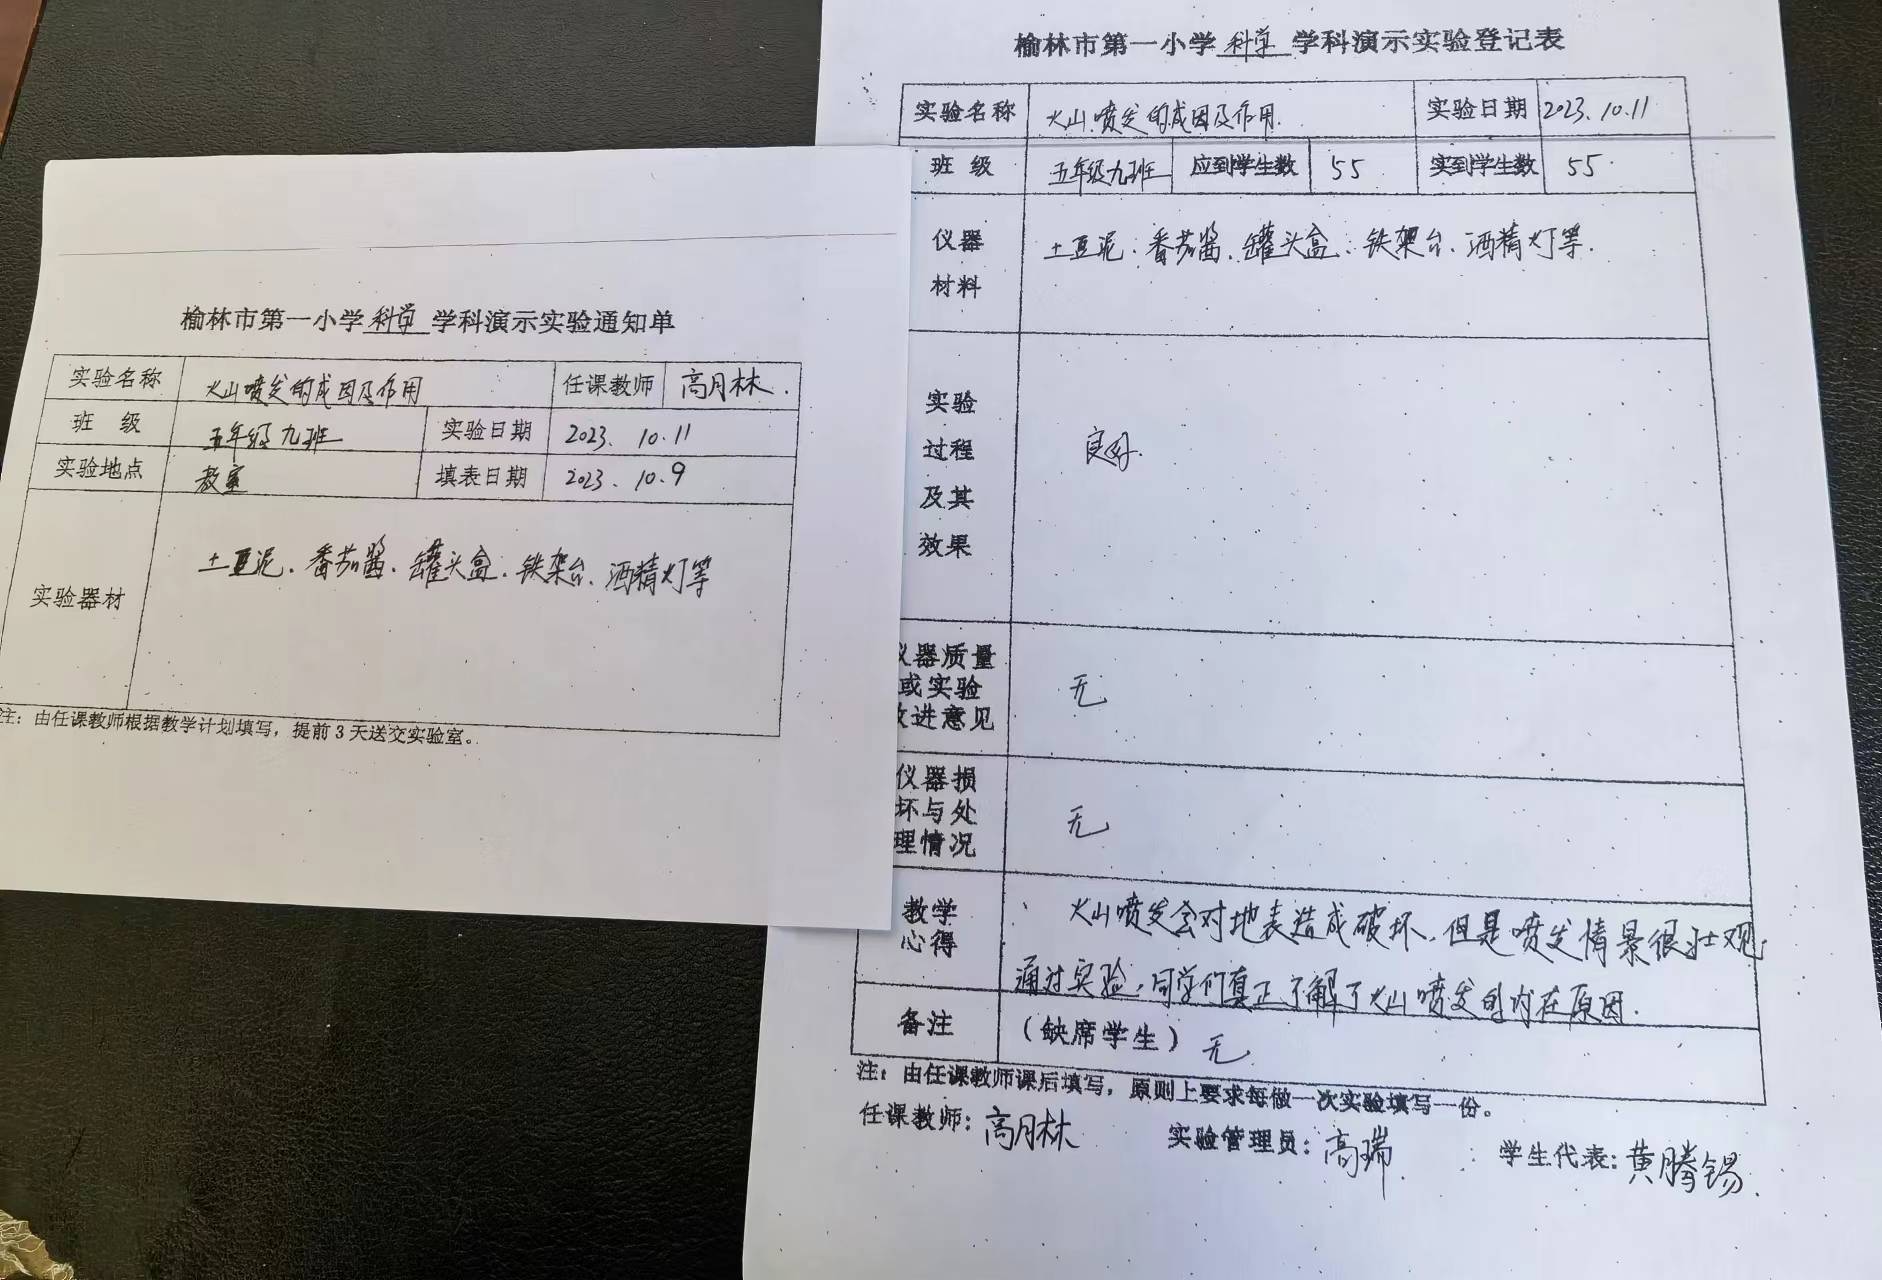 榆林市第一小学科学学科演示实验通知单
实验名称 火山喷发的成因及作用 任课教师 高月林.
班 级 五年级九班 实验日期 2023. 10.11
实验地点 教室 填表日期 2023. 10.9
实验器材 土豆泥、番茄酱、罐头盒、铁架台、酒精灯等
注：由任课教师根据教学计划填写，提前3天送交实验室。
榆林市第一小学科学学科演示实验登记表
实验名称 火山喷发的成因及作用. 实验日期 2023.10.11
班 级 五年级九班 应到学生数 55 实到学生数 55.
仪器
材料
土豆泥、番茄酱、罐头盒、铁架台、酒精灯等.
实验
过程
及其
效果
良好.
仪器质量
或实验
改进意见
无
仪器损
坏与处
理情况
无
教学
心得
火山喷发会对地表造成破坏，但是喷发情景很壮观，
通过实验，同学们真正了解了火山喷发的内在原因.
备注 （缺席学生）无
注：由任课教师课后填写，原则上要求每做一次实验填写一份。
任课教师：高月林 实验管理员：高瑞 学生代表：黄腾锡.